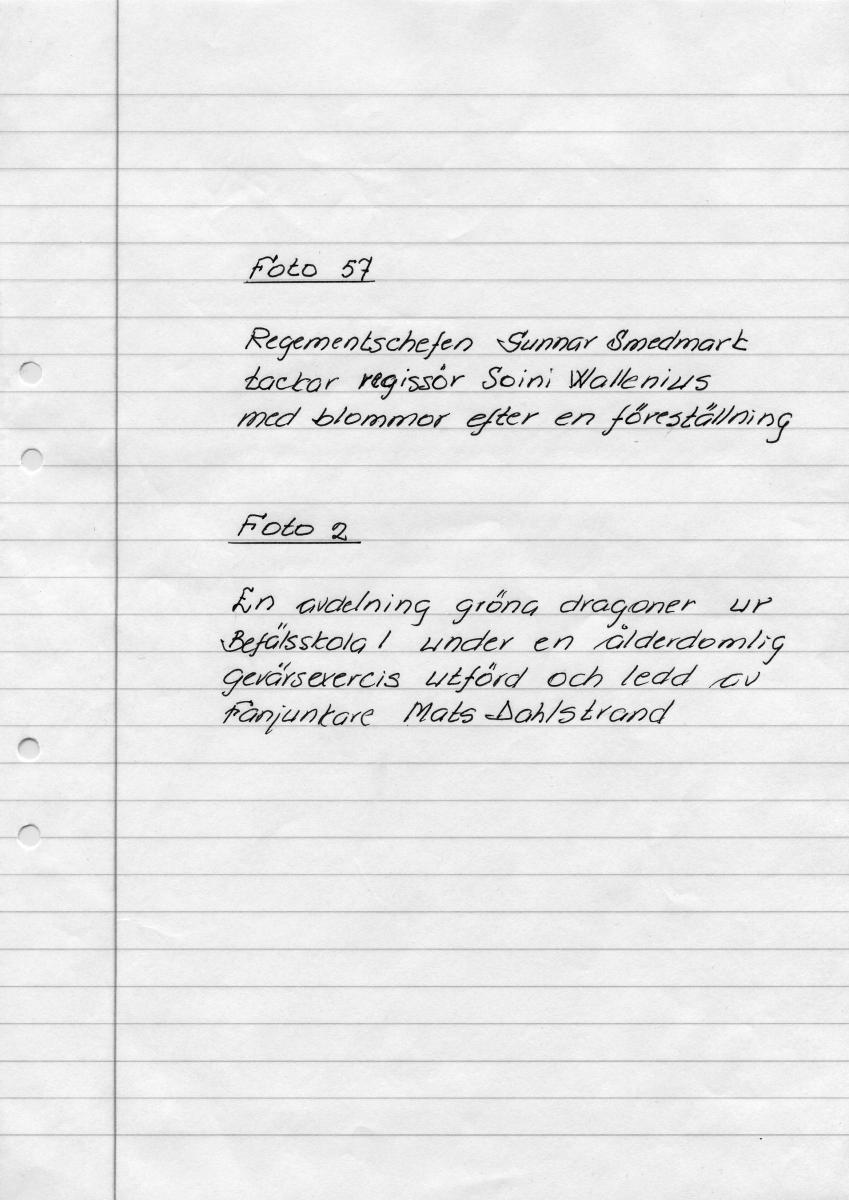 Foto 57
Regementschefen Gunnar Smedmark
tackar regissör Soini Wallenius
med blommor efter en föreställning
Foto 2
En avdelning gröna dragoner ur
Befälsskola 1 under en ålderdomlig
gevärsexercis utförd och ledd av
Fanjunkare Mats Dahlstrand